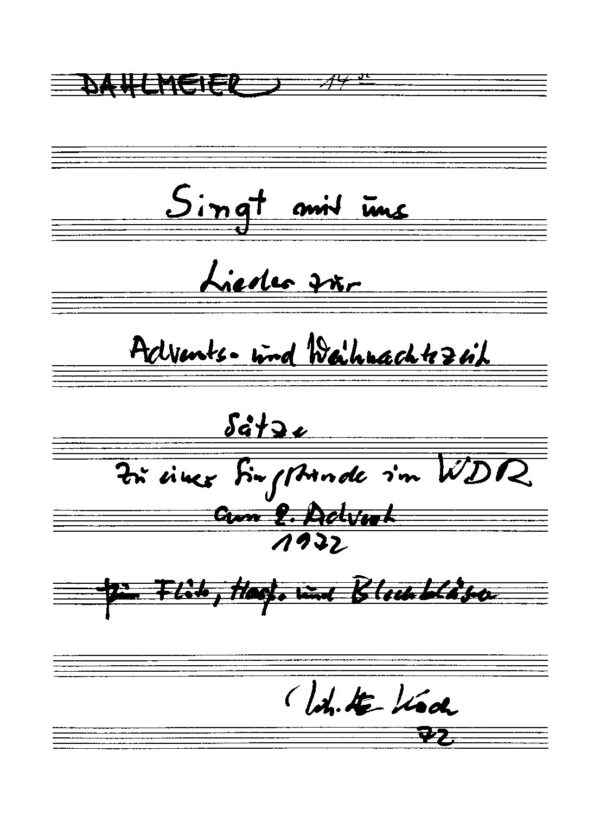 DAHLMEIER 14
Singt mit uns
Lieder zur
Advents- und Weihnachtszeit
Sätze
zu einer Singstunde im WDR
am 2. Advent
1972
für Flöte, Harfe und Blechbläser
Joh. H. E. Koch
72